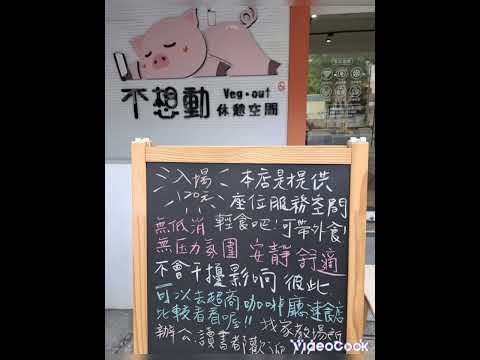 不想動
Veg·out
休憩空間
入場 本店是提供
120元 座位服務空間
無低消 輕食吧!可帶外食!
無压力氛圍 安靜 舒適
不會干擾影响 彼此
可以去超商咖啡廳速食店
比較看看喔!! 找家教場所
辦公讀書都歡迎
VideoCook